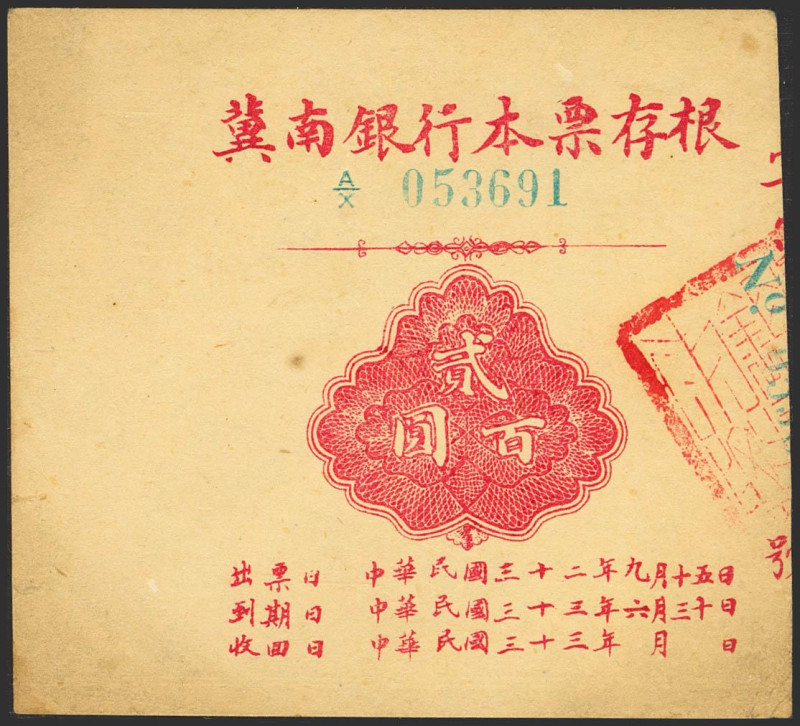 冀南銀行本票存根
A/X 053691
貳
百圓
No.
號
出票日 中華民國三十二年九月十五日
到期日 中華民國三十三年六月三十日
收回日 中華民國三十三年 月 日